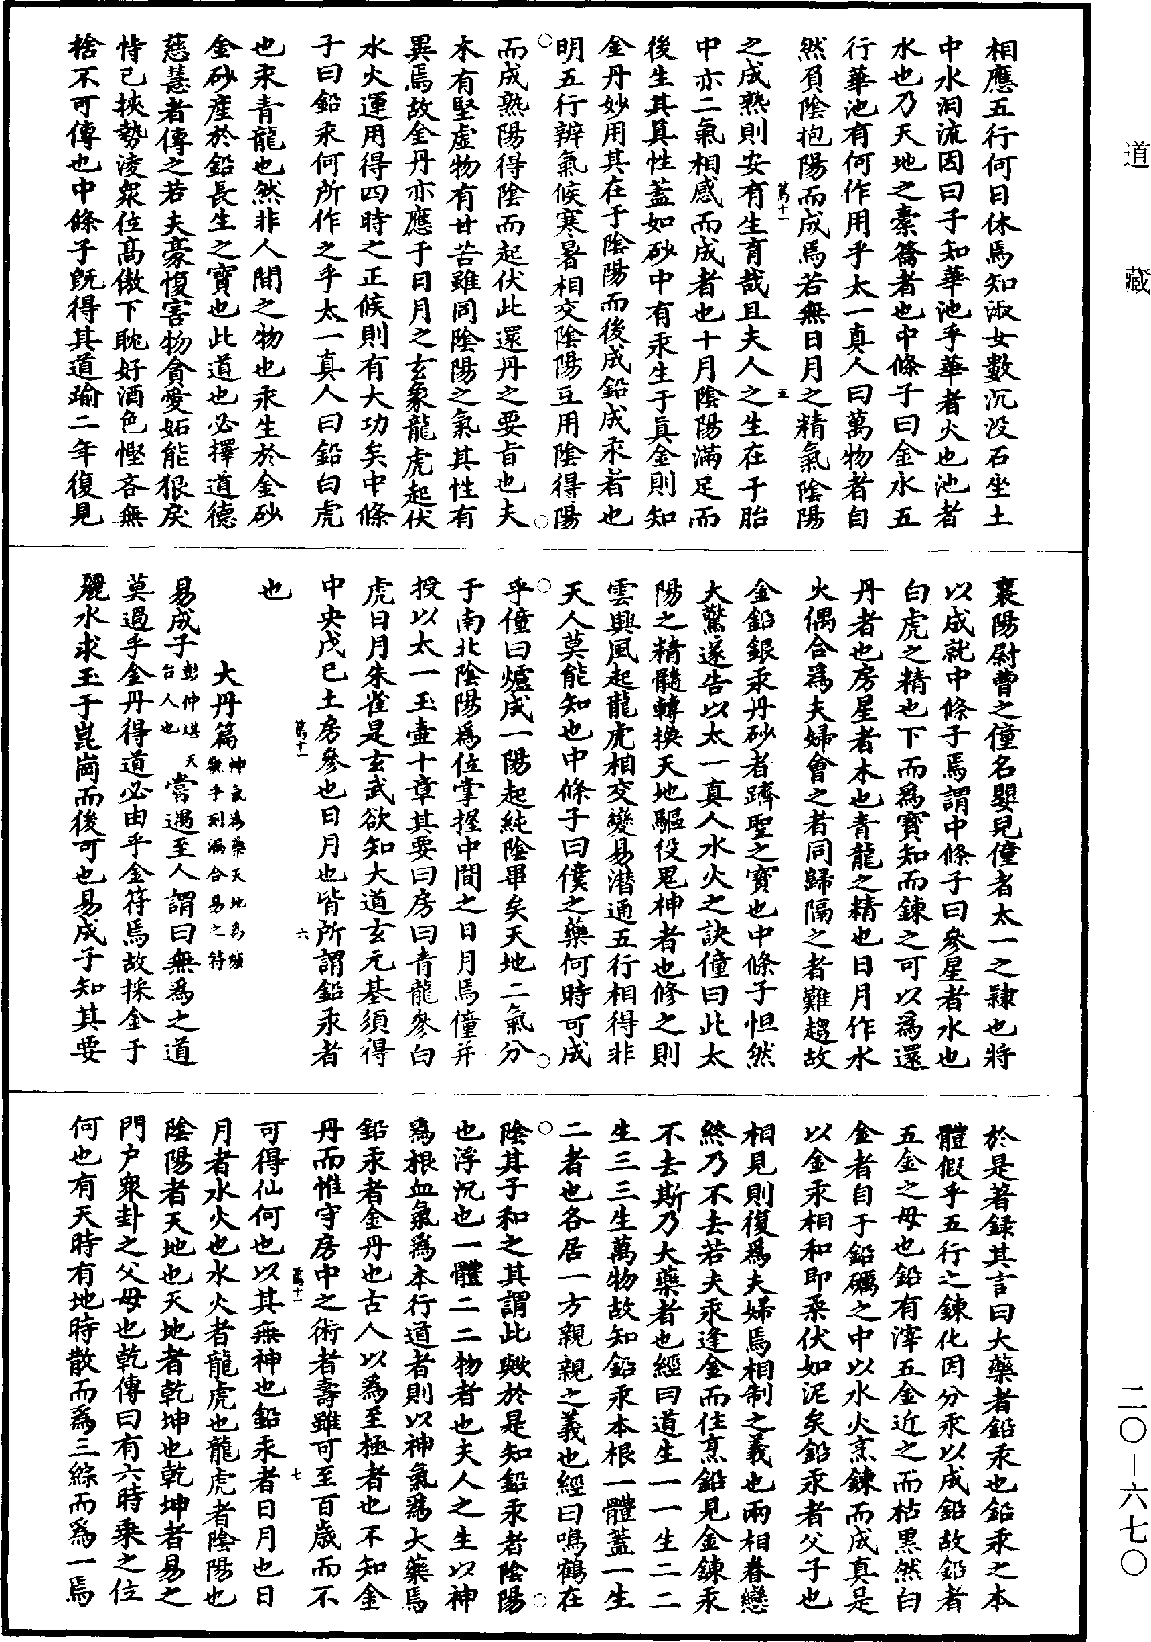 道藏
相應五行何日休焉知淑女數沉没石坐土
中水洞流因曰子知華池乎華者火也池者
水也乃天地之橐籥者也中條子曰金水五
行華池有何作用乎太一真人曰萬物者自
然負陰抱陽而成焉若無日月之精氣陰陽
萬十一 五
之成熟則安有生育哉且夫人之生在于胎
中亦二氣相感而成者也十月陰陽滿足而
後生其真性蓋如砂中有汞生于真金則知
金丹妙用其在于陰陽而後成鉛成汞者也
明五行辨氣候寒暑相交陰陽互用陰得陽
而成熟陽得陰而起伏此還丹之要旨也夫
木有堅虚物有甘苦雖同陰陽之氣其性有
異焉故金丹亦應于日月之玄象龍虎起伏
水火運用得四時之正候則有大功矣中條
子曰鉛汞何所作之乎太一真人曰鉛白虎
也汞青龍也然非人間之物也汞生於金砂
金砂産於鉛長生之寶也此道也必擇道德
慈惠者傳之若夫豪愎害物貪愛妬能狠戾
恃己挾勢淩衆位高傲下躭好酒色慳吝無
捨不可傳也中條子旣得其道踰二年復見
襄陽尉曹之僮名嬰兒僮者太一之隸也將
以成就中條子焉謂中條子曰參星者水也
白虎之精也下而爲寶知而錬之可以爲還
丹者也房星者木也青龍之精也日月作水
火偶合爲夫婦會之者同歸隔之者難趨故
金鉛銀汞丹砂者躋聖之寶也中條子怛然
大驚遂告以太一真人水火之訣僮曰此太
陽之精髓轉換天地驅役鬼神者也修之則
雲興風起龍虎相交變易潛通五行相得非
天人莫能知也中條子曰僕之藥何時可成
乎僮曰爐成一陽起純陰畢矣天地二氣分
于南北陰陽爲位掌握中間之日月焉僮并
授以太一玉壷十章其要曰房曰青龍參白
虎日月朱雀是玄武欲知大道玄元基須得
中央戊己土房參也日月也皆所謂鉛汞者
萬十一 六
也
大丹篇神氣爲藥天地爲爐無乎刻漏合易之符
易成子彭仲堪天台人也嘗遇至人謂曰無爲之道
莫過乎金丹得道必由乎金符焉故採金于
麗水求玉于崑崗而後可也易成子知其要
於是著録其言曰大藥者鉛汞也鉛汞之本
體假乎五行之錬化因分汞以成鉛故鉛者
五金之母也鉛有滓五金近之而枯黒然白
金者自于鉛礪之中以水火烹錬而成真是
以金汞相和即柔伏如泥矣鉛汞者父子也
相見則復爲夫婦焉相制之義也兩相眷戀
終乃不去若夫汞逢金而住烹鉛見金錬汞
不去斯乃大藥者也經曰道生一一生二二
生三三生萬物故知鉛汞本根一體蓋一生
二者也各居一方親親之義也經曰鳴鶴在
陰其子和之其謂此歟於是知鉛汞者陰陽
也浮沉也一體二二物者也夫人之生以神
爲根血氣爲本行道者則以神氣爲大藥焉
鉛汞者金丹也古人以爲至極者也不知金
丹而惟守房中之術者壽雖可至百歲而不
萬十一 七
可得仙何也以其無神也鉛汞者日月也日
月者水火也水火者龍虎也龍虎者陰陽也
陰陽者天地也天地者乾坤也乾坤者易之
門户衆卦之父母也乾傳曰有六時乘之位
何也有天時有地時散而爲三綜而爲一焉
二〇—六七〇